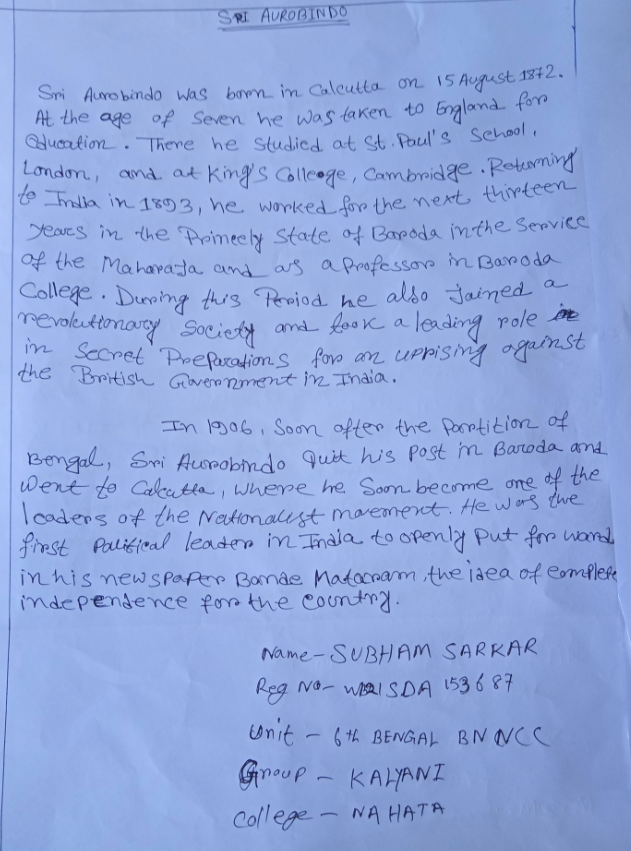 SRI AUROBINDO
Sri Aurobindo was born in Calcutta on 15 August 1872.
At the age of Seven he was taken to England for
Education. There he studied at St. Paul's School,
London, and at King's College, Cambridge. Returning
to India in 1893, he worked for the next thirteen
years in the Princely State of Baroda in the Service
of the Maharaja and as a Professor in Baroda
College. During this Period he also Jained a
revolutionary Society and took a leading role
in Secret Preparations for an uprising against
the British Government in India.
In 1906, Soon after the Partition of
Bengal, Sri Aurobindo Quit his Post in Baroda and
Went to Calcutta, where he Soon become one of the
leaders of the Nationalist movement. He was the
first Political leader in India to openly put for ward
in his newspaper Bande Mataram, the idea of complete
independence for the country.
Name - SUBHAM SARKAR
Reg No - SDA 153687
Unit - 6th BENGAL BN NCC
Group - KALYANI
College - NAHATA